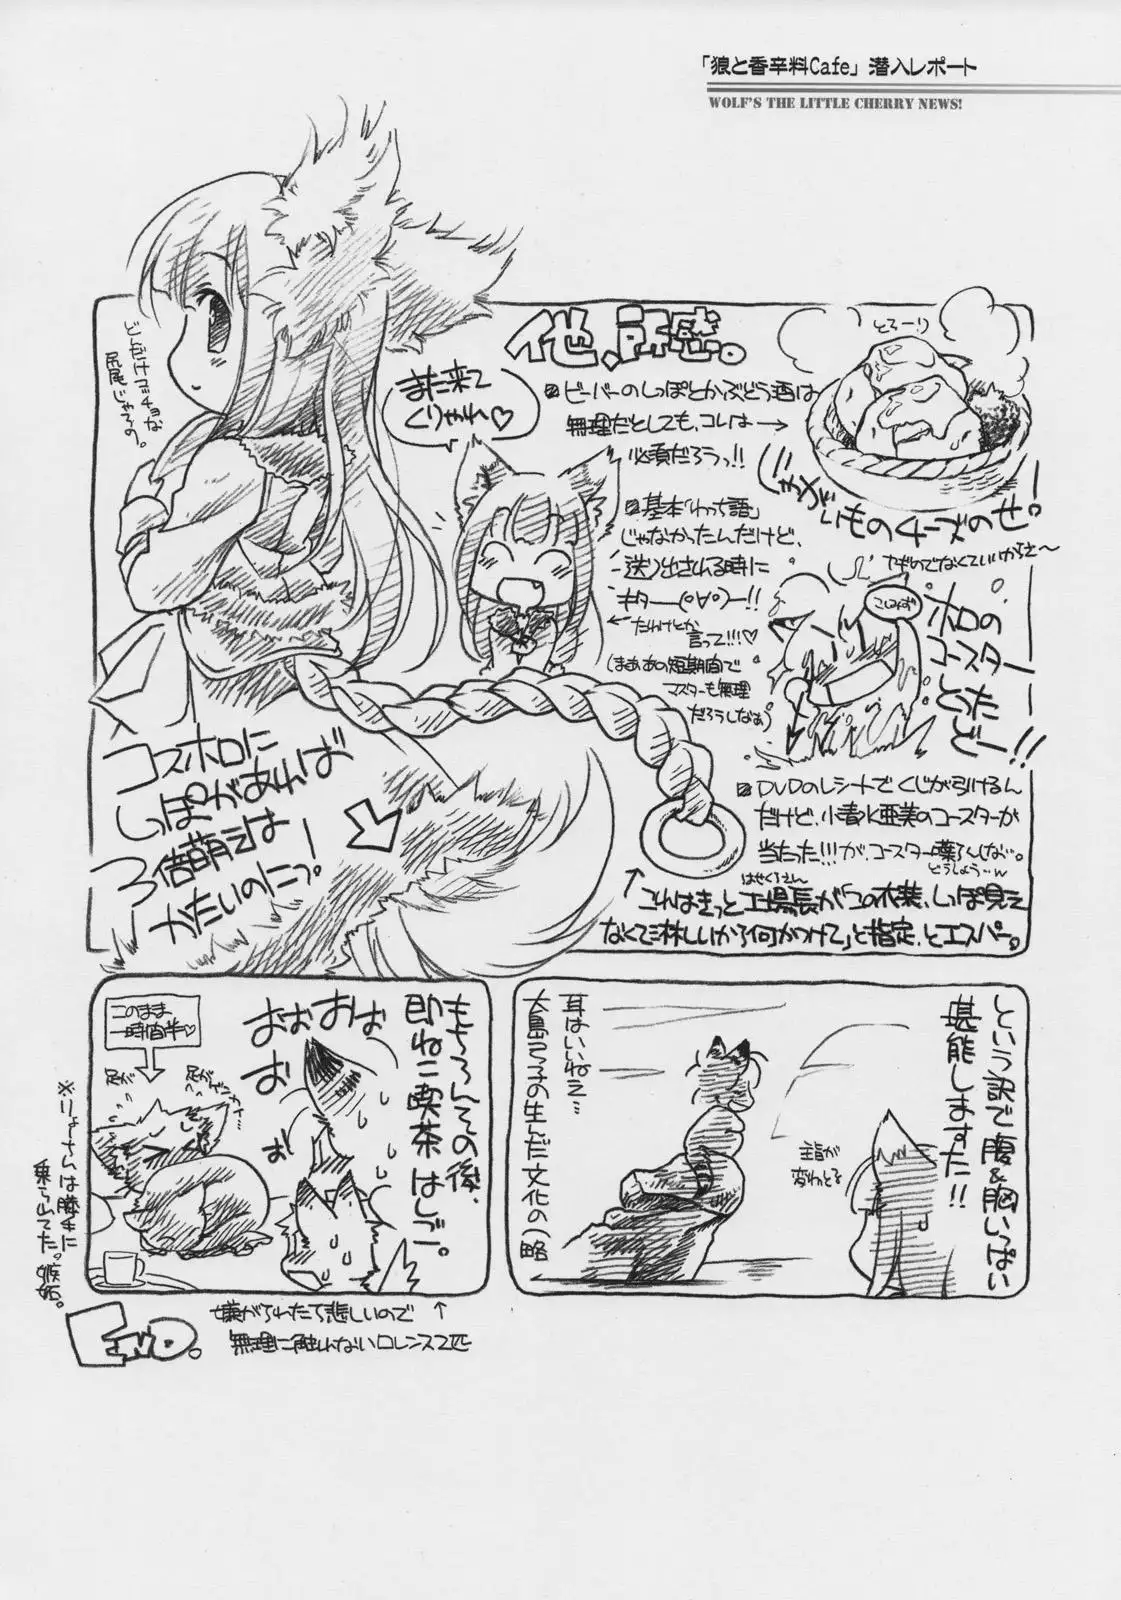 「狼と香辛料Cafe」潜入レポート
WOLF'S THE LITTLE CHERRY NEWS!
他、所感。
ビーバーのしっぽとかぶどう酒は
無理だとしても、コレは→
必須だろうっ!!
とろーり
じゃがいものチーズのせ
ヤギのでなくていいからさ〜
また来て
くりゃれ♡
どんだけゴッチョな
尻尾じゃろの。
基本「わっち語」
じゃなかったんだけど、
送り出される時に
キター(°∀°)ー!!
←たわけとか
言って!!!♡
(まぁあの短期間で
マスターも無理
だろうしなぁ)
ホロの
コースター
とった
どー!!
DVDのレシートでくじが引けるん
だけど、小清水亜美のコースターが
当たった!!!が、コースター
どうしよう…w
コスホロに
しっぽがあれば
3倍萌えは
かたいのにっ!
はせくらさん
これはきっと工場長が「この衣装、しっぽ見え
なくて淋しいから何かつけて」と指定、とエスパー。
という訳で腹&胸いっぱい
堪能しますた!!
主旨が
変わっとる
耳はいいねぇ…
大島弓子の生んだ文化の(略
もちろんその後、
即ねこ喫茶はしご。
おぉおぉ
おぉ
このまま
一時間半♡
※りょーさんは膝の上に
END。
嫌がられたら悲しいので
無理に触れないロレンス2匹